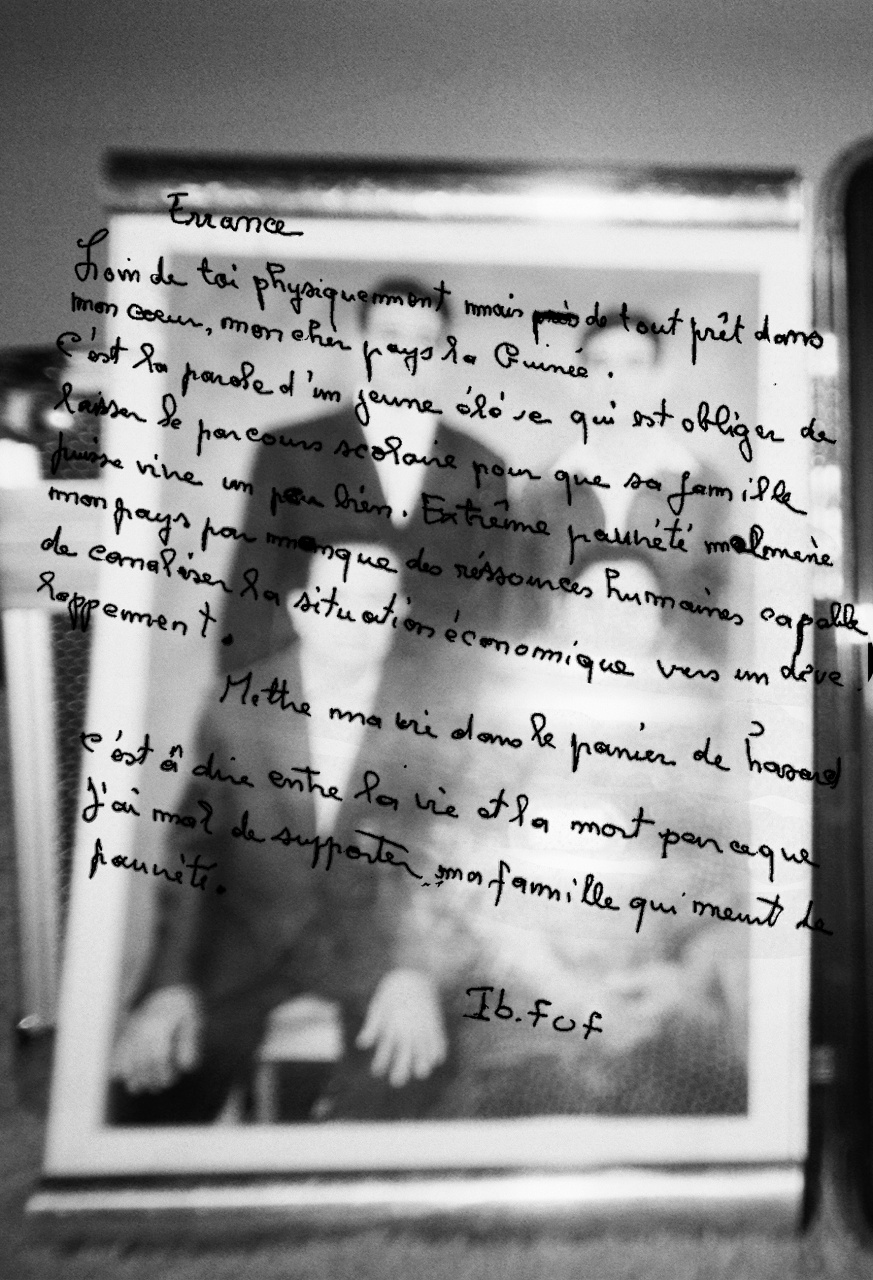 Errance
Loin de toi physiquemment mais de tout prêt dans
mon coeur, mon chèr pays la Guinée.
C'ést la parole d'un jeune élévé qui est obliger de
laisser le parcours scolaire pour que sa famille
puisse vivre un peu bien. Extrême pauvrété malmène
mon pays par manque des réssources humaines capable
de canaliser la situation économique vers un déve
loppement.
Mettre ma vie dans le panier de hasard
c'ést â dire entre la vie et la mort parceque
J'ai mal de supporter ma famille qui meurt de
pauvrété.
Ib.fof